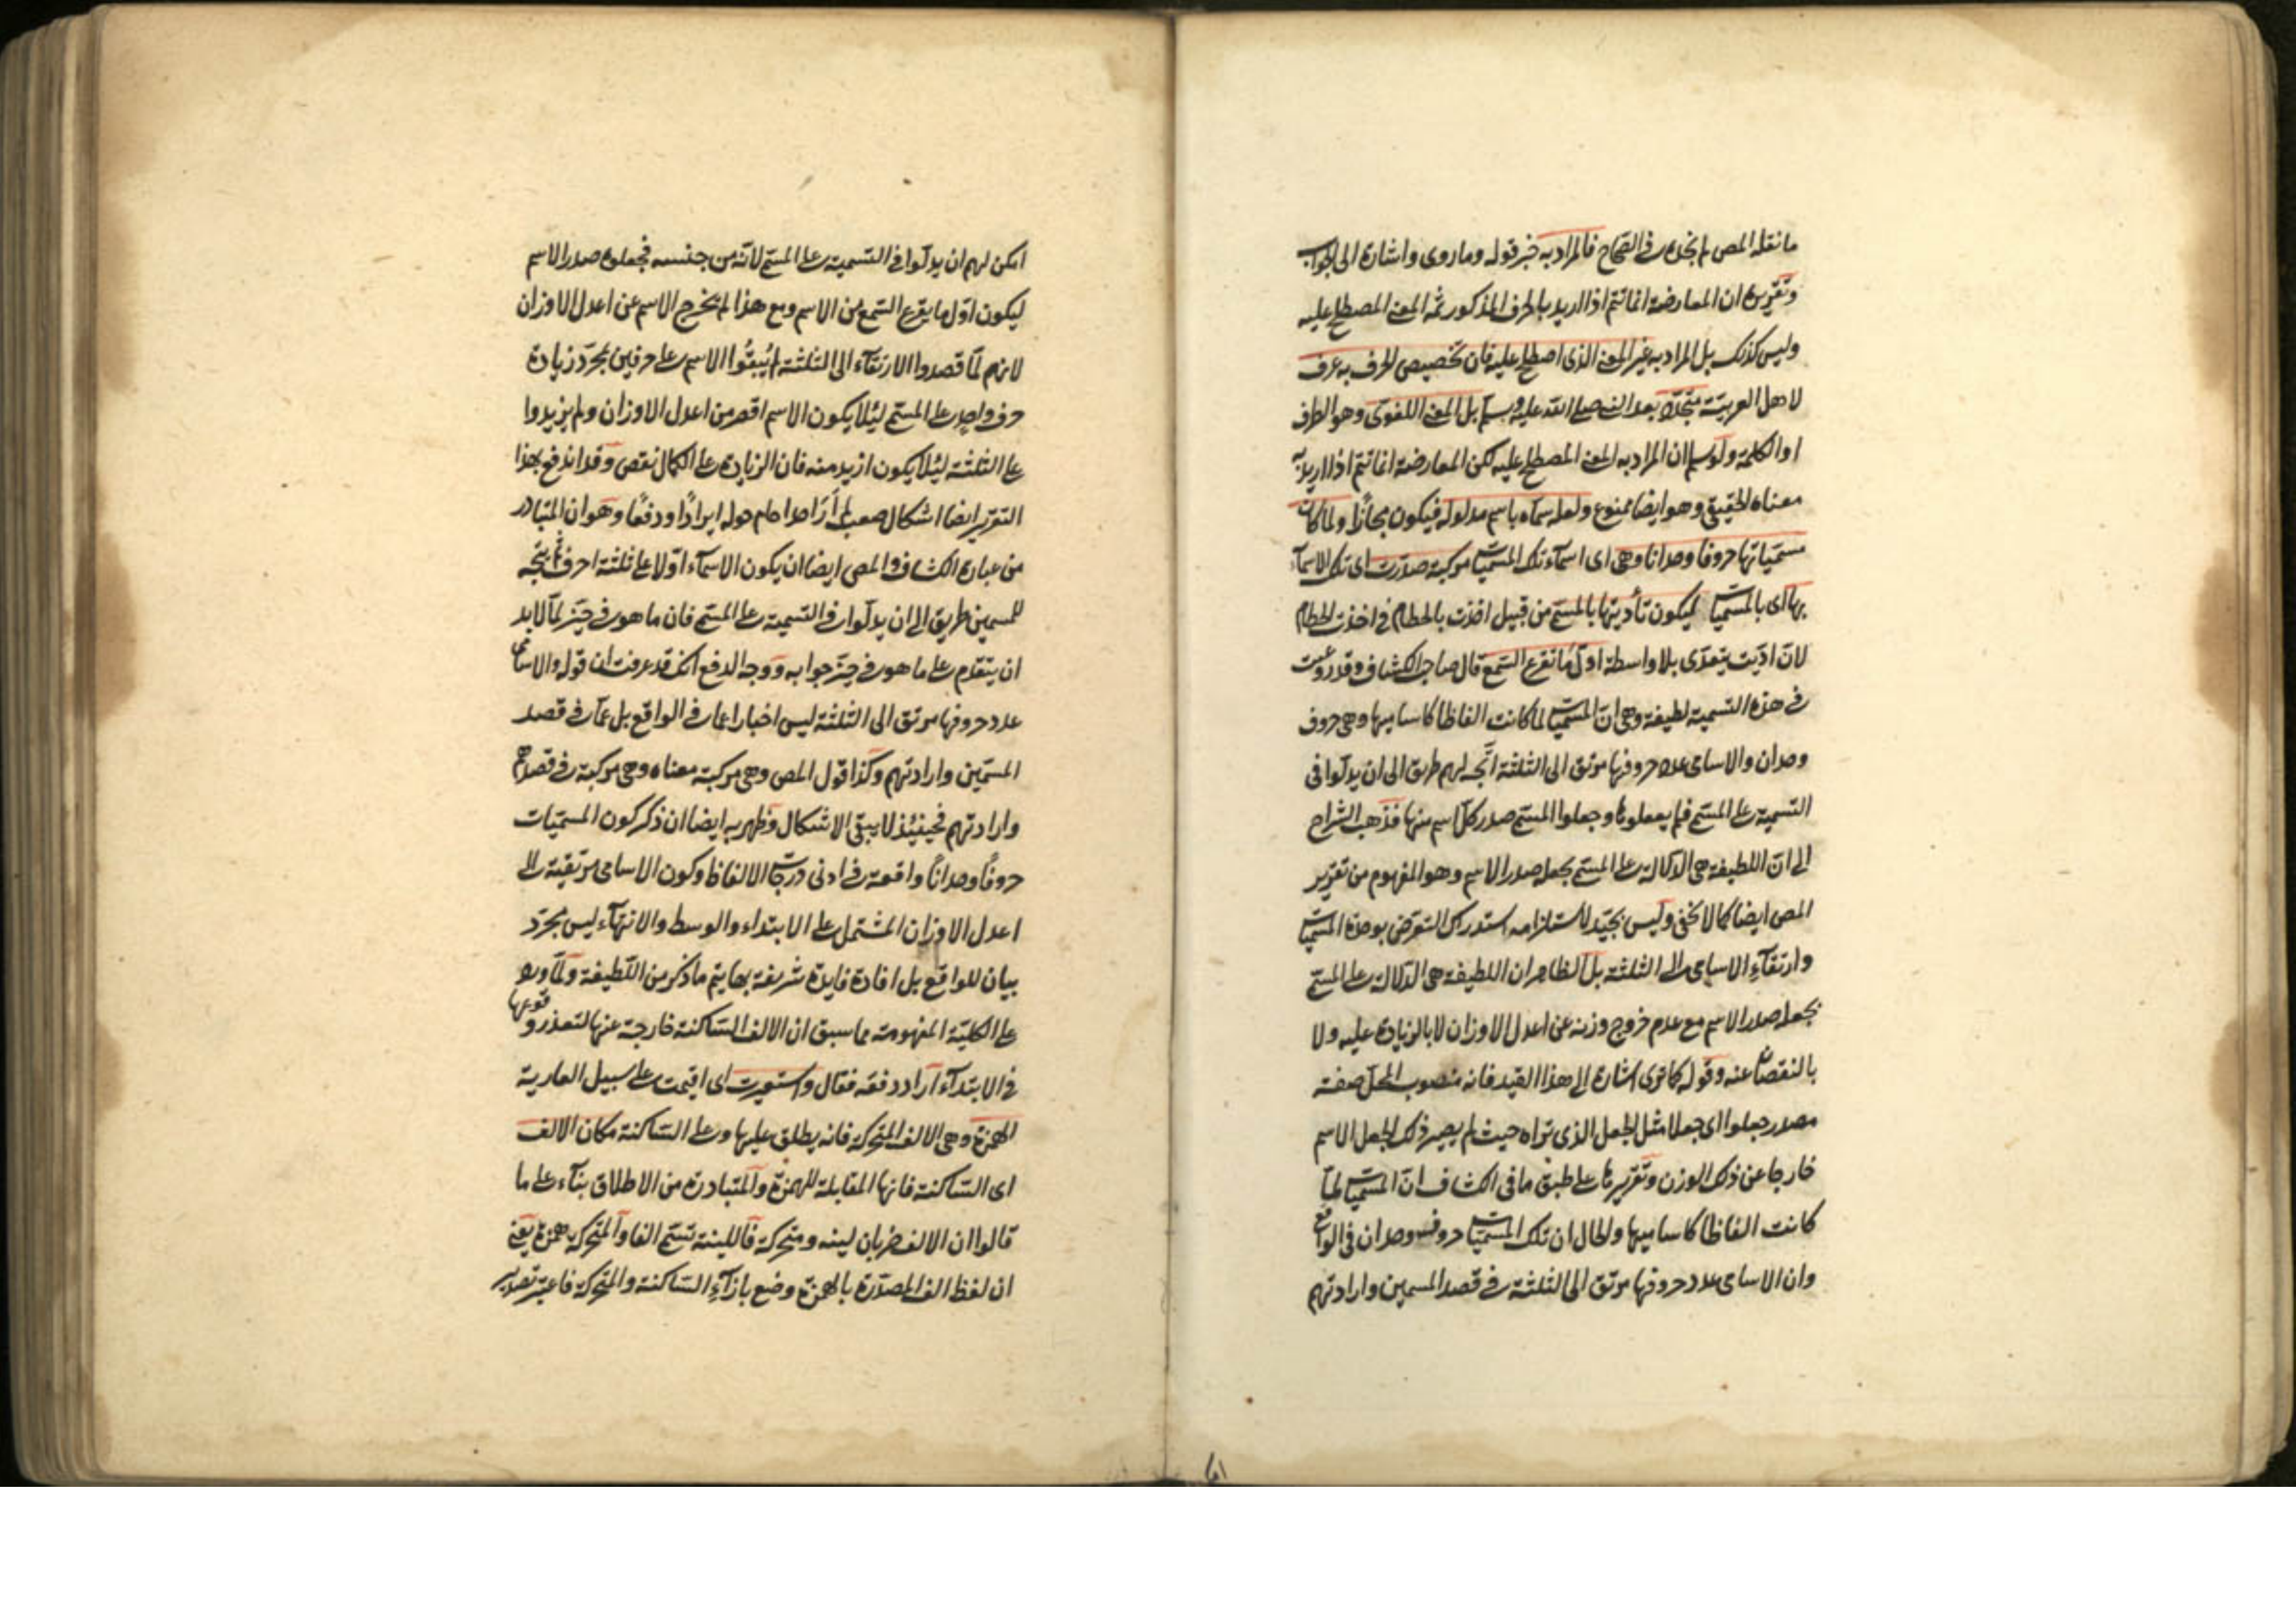 ما نقله المص لم نجده في الصحاح فالمراد به خبر قوله وما روى واشارة الى الجواب
وتقريره ان المعارضة انما تتم اذا اريد بالحرف المذكور ثمه المعنى المصطلح عليه
وليس كذلك بل المراد به غير المعنى الذى اصطلح عليه فان تخصيص الحرف به عرف
لاهل العربية متجدد بعد النبى صلى الله عليه وسلم بل المعنى اللغوى وهو الطرف
او الكلمة ولو سلم ان المراد به المعنى المصطلح عليه لكن المعارضة انما تتم اذا اريد به
معناه الحقيقى وهو ايضا ممنوع ولعله سماه باسم مدلوله فيكون مجازا ولما كانت
مسمياتها حروفا وحدانا وهى اى اسماء تلك المسميات مركبة صدرت اى تلك الاسماء
بها اى بالمسميات ليكون تأديتها بالمسمى من قبيل اخذت بالحطام في اخذت الحطام
لان اديت يتعدى بلا واسطة اول ما تقرع السمع قال صاحب الكشاف وقد روعيت
في هذه التسمية لطيفة وهى ان المسميات لما كانت الفاظا كاساميها وهى حروف
وحدان والاسامى عدد حروفها مرتق الى الثلثة اتجه لهم طريق الى ان يدلوا في
التسمية على المسمى فلم يغفلوها وجعلوا المسمى صدر كل اسم منها فذهب الشراح
الى ان اللطيفة هى الدلالة على المسمى بجعله صدر الاسم وهو المفهوم من تقرير
المص ايضا كما لا يخفى وليس بجيد لاستلزامه استدراك التعرض بوحدة المسميات
وارتقاء الاسامى الى الثلثة بل الظاهر ان اللطيفة هى الدلالة على المسمى
بجعله صدر الاسم مع عدم خروج وزنه عن اعدل الاوزان لا بالزيادة عليه ولا
بالنقصان عنه وقوله كما ترى اشارة الى هذا القيد فانه منصوب المحل صفة
مصدر جعلوا اى جعلا مثل الجعل الذى تراه حيث لم يصير ذلك الجعل الاسم
خارجا عن ذلك الوزن وتقريرها على طبق ما في الكشاف ان المسميات لما
كانت الفاظا كاساميها والحال ان تلك المسميات حروف وحدان في الواقع
وان الاسامى عدد حروفها مرتق الى الثلثة في قصد المسمين وارادتهم
امكن لهم ان يدلوا في التسمية على المسمى لانه من جنسه فجعلوه صدر الاسم
ليكون اول ما يقرع السمع من الاسم ومع هذا لم يخرج الاسم عن اعدل الاوزان
لانهم لما قصدوا الارتقاء الى الثلثة لم يبقوا الاسم على حرفين بمجرد زيادة
حرف واحد على المسمى ليئلا يكون الاسم اقصر من اعدل الاوزان ولم يزيدوا
على الثلثة ليئلا يكون ازيد منه فان الزيادة على الكمال نقص وقد اندفع بهذا
التقرير ايضا اشكال صعب لم أر احدا حام حوله ايرادا ودفعا وهو ان المتبادر
من عبارة الكشاف والمص ايضا ان يكون الاسماء اولا على ثلثة احرف ثم يتجه
للمسمين طريق الى ان يدلوا في التسمية على المسمى فان ما هو في حيز لما لا بد
ان يتقدم على ما هو في حيز جوابه ووجه الدفع انك قد عرفت ان قوله والاسامى
عدد حروفها مرتق الى الثلثة ليس اخبارا عما في الواقع بل عما في قصد
المسمين وارادتهم وكذا قول المص وهى مركبة معناه وهى مركبة في قصدهم
وارادتهم فحينئذ لا يبقى الاشكال وظهر به ايضا ان ذكر كون المسميات
حروفا وحدانا واقعة في ادنى درجات الالفاظ وكون الاسامى مرتقية الى
اعدل الاوزان المشتمل على الابتداء والوسط والانتهاء ليس بمجرد
بيان للواقع بل افادة فايدة شريفة بها يتم ما ذكر من اللطيفة ولما ورد
على الكلية المفهومة مما سبق ان الالف الساكنة خارجة عنها لتعذر وقوعها
في الابتداء اراد دفعه فقال واستعيرت اى اقيمت على سبيل العارية
الهمزة وهى الالف المتحركة فانه يطلق عليها وعلى الساكنة مكان الالف
اى الساكنة فانها المقابلة للهمزة والمتبادرة من الاطلاق بناء على ما
قالوا ان الالف ضربان لينه ومتحركة فاللينة تسمى الفا والمتحركة همزة يعنى
ان لفظ الف المصدرة بالهمزة وضع بازاء الساكنة والمتحركة فاعتبر تصدير